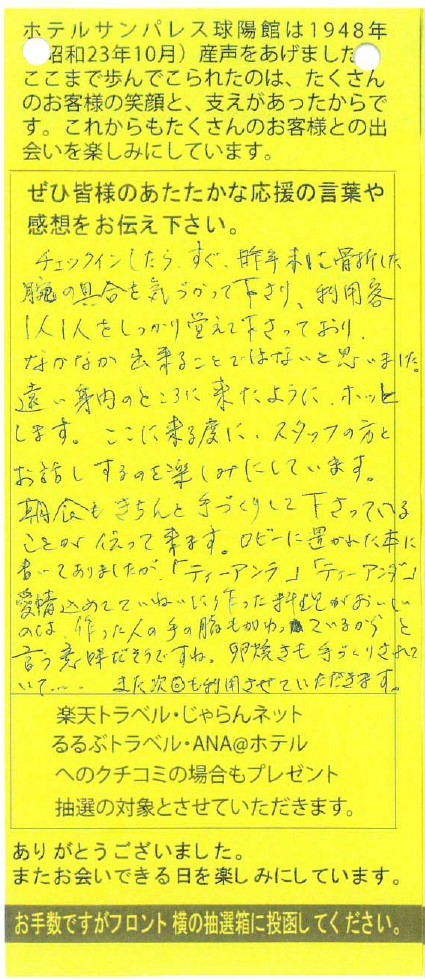 ホテルサンパレス球陽館は1948年
昭和23年10月）産声をあげました
ここまで歩んでこられたのは、たくさん
のお客様の笑顔と、支えがあったからで
す。これからもたくさんのお客様との出
会いを楽しみにしています。
ぜひ皆様のあたたかな応援の言葉や
感想をお伝え下さい。
チェックインしたら、すぐ、昨年末に骨折した
腕の具合を気づかって下さり、利用客
1人1人をしっかり覚えて下さっており、
なかなか出来ることではないと思いました。
遠い身内のところに来たように、ホッと
します。ここに来る度に、スタッフの方と
お話しするのを楽しみにしています。
朝食もきちんと手づくりして下さっている
ことが伝って来ます。ロビーに置かれた本に
書いてありましたが、「ティーアンラ」「ティーアンダ」
愛情込めてていねいに作った料理がおいしい
のは、作った人の手の脂もがわっているからと
言う意味だそうですね。卵焼きも手づくりされて
いて…。また次回も利用させていただきます。
楽天トラベル・じゃらんネット
るるぶトラベル・ANA@ホテル
へのクチコミの場合もプレゼント
抽選の対象とさせていただきます。
ありがとうございました。
またお会いできる日を楽しみにしています。
お手数ですがフロント横の抽選箱に投函してください。